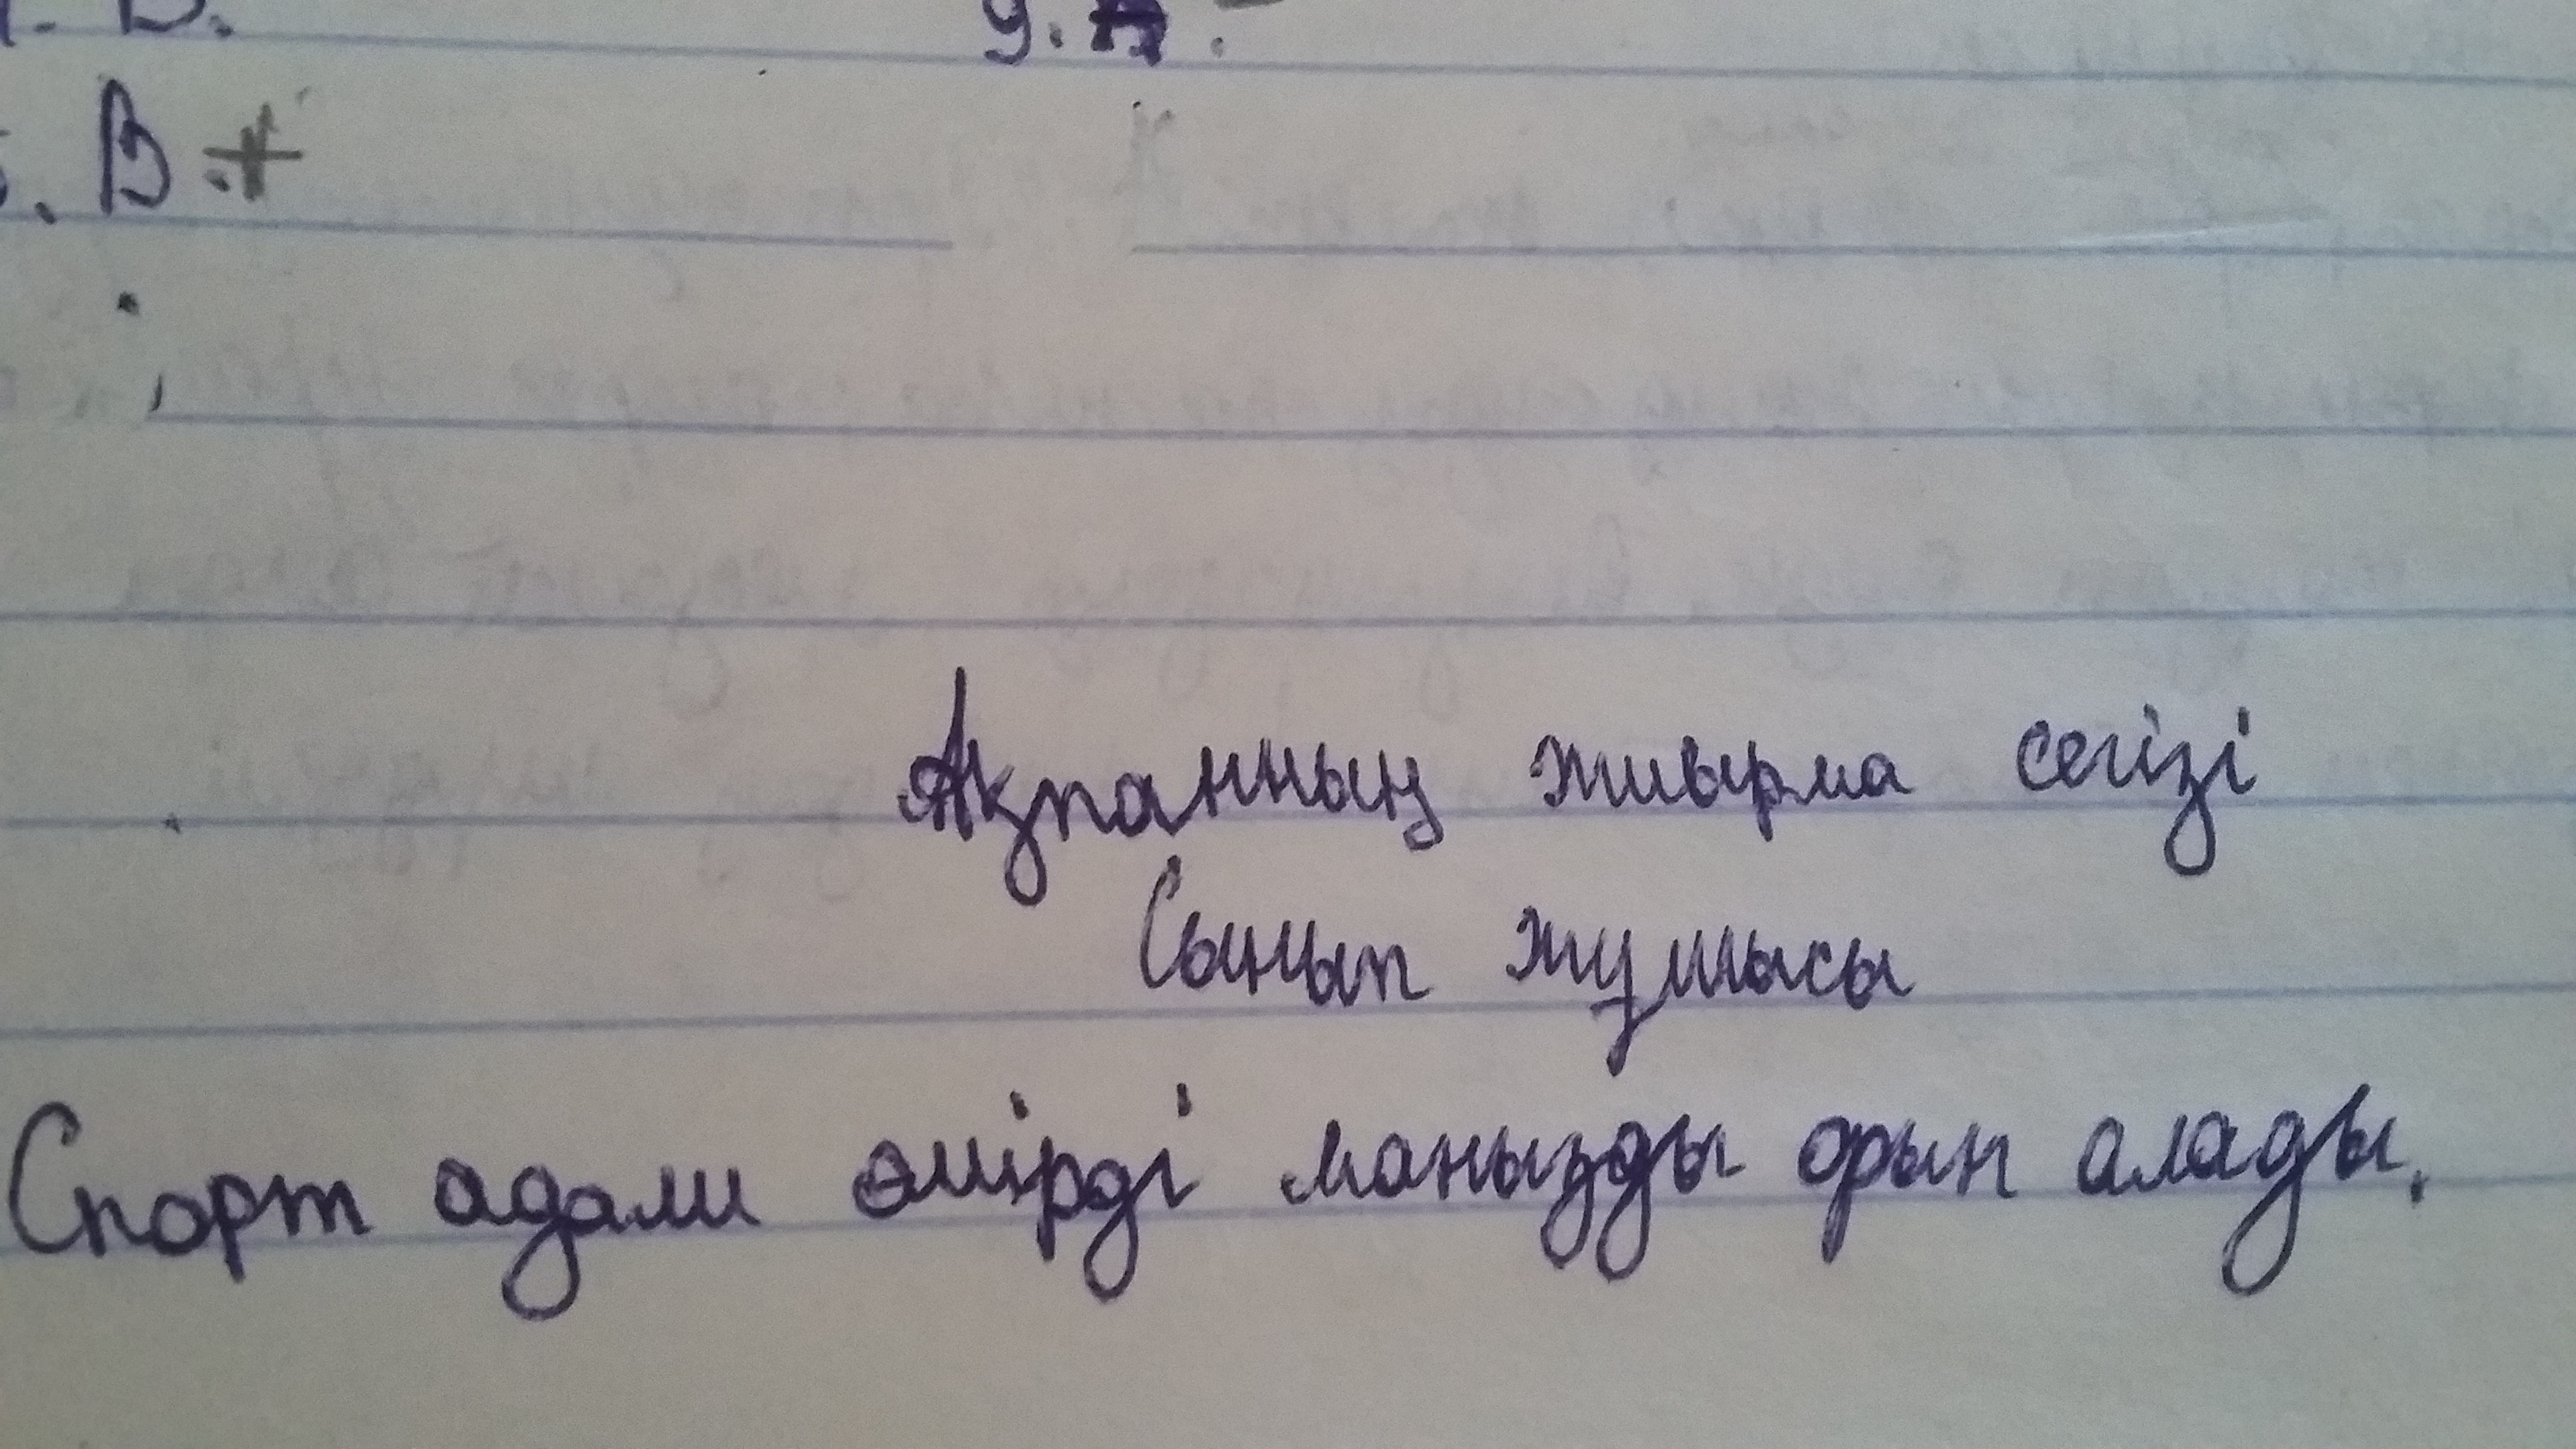 9. А.
В. +
Ақпанның жиырма сегізі
Сынып жұмысы
Спорт адам өмірді манызды орын алады.